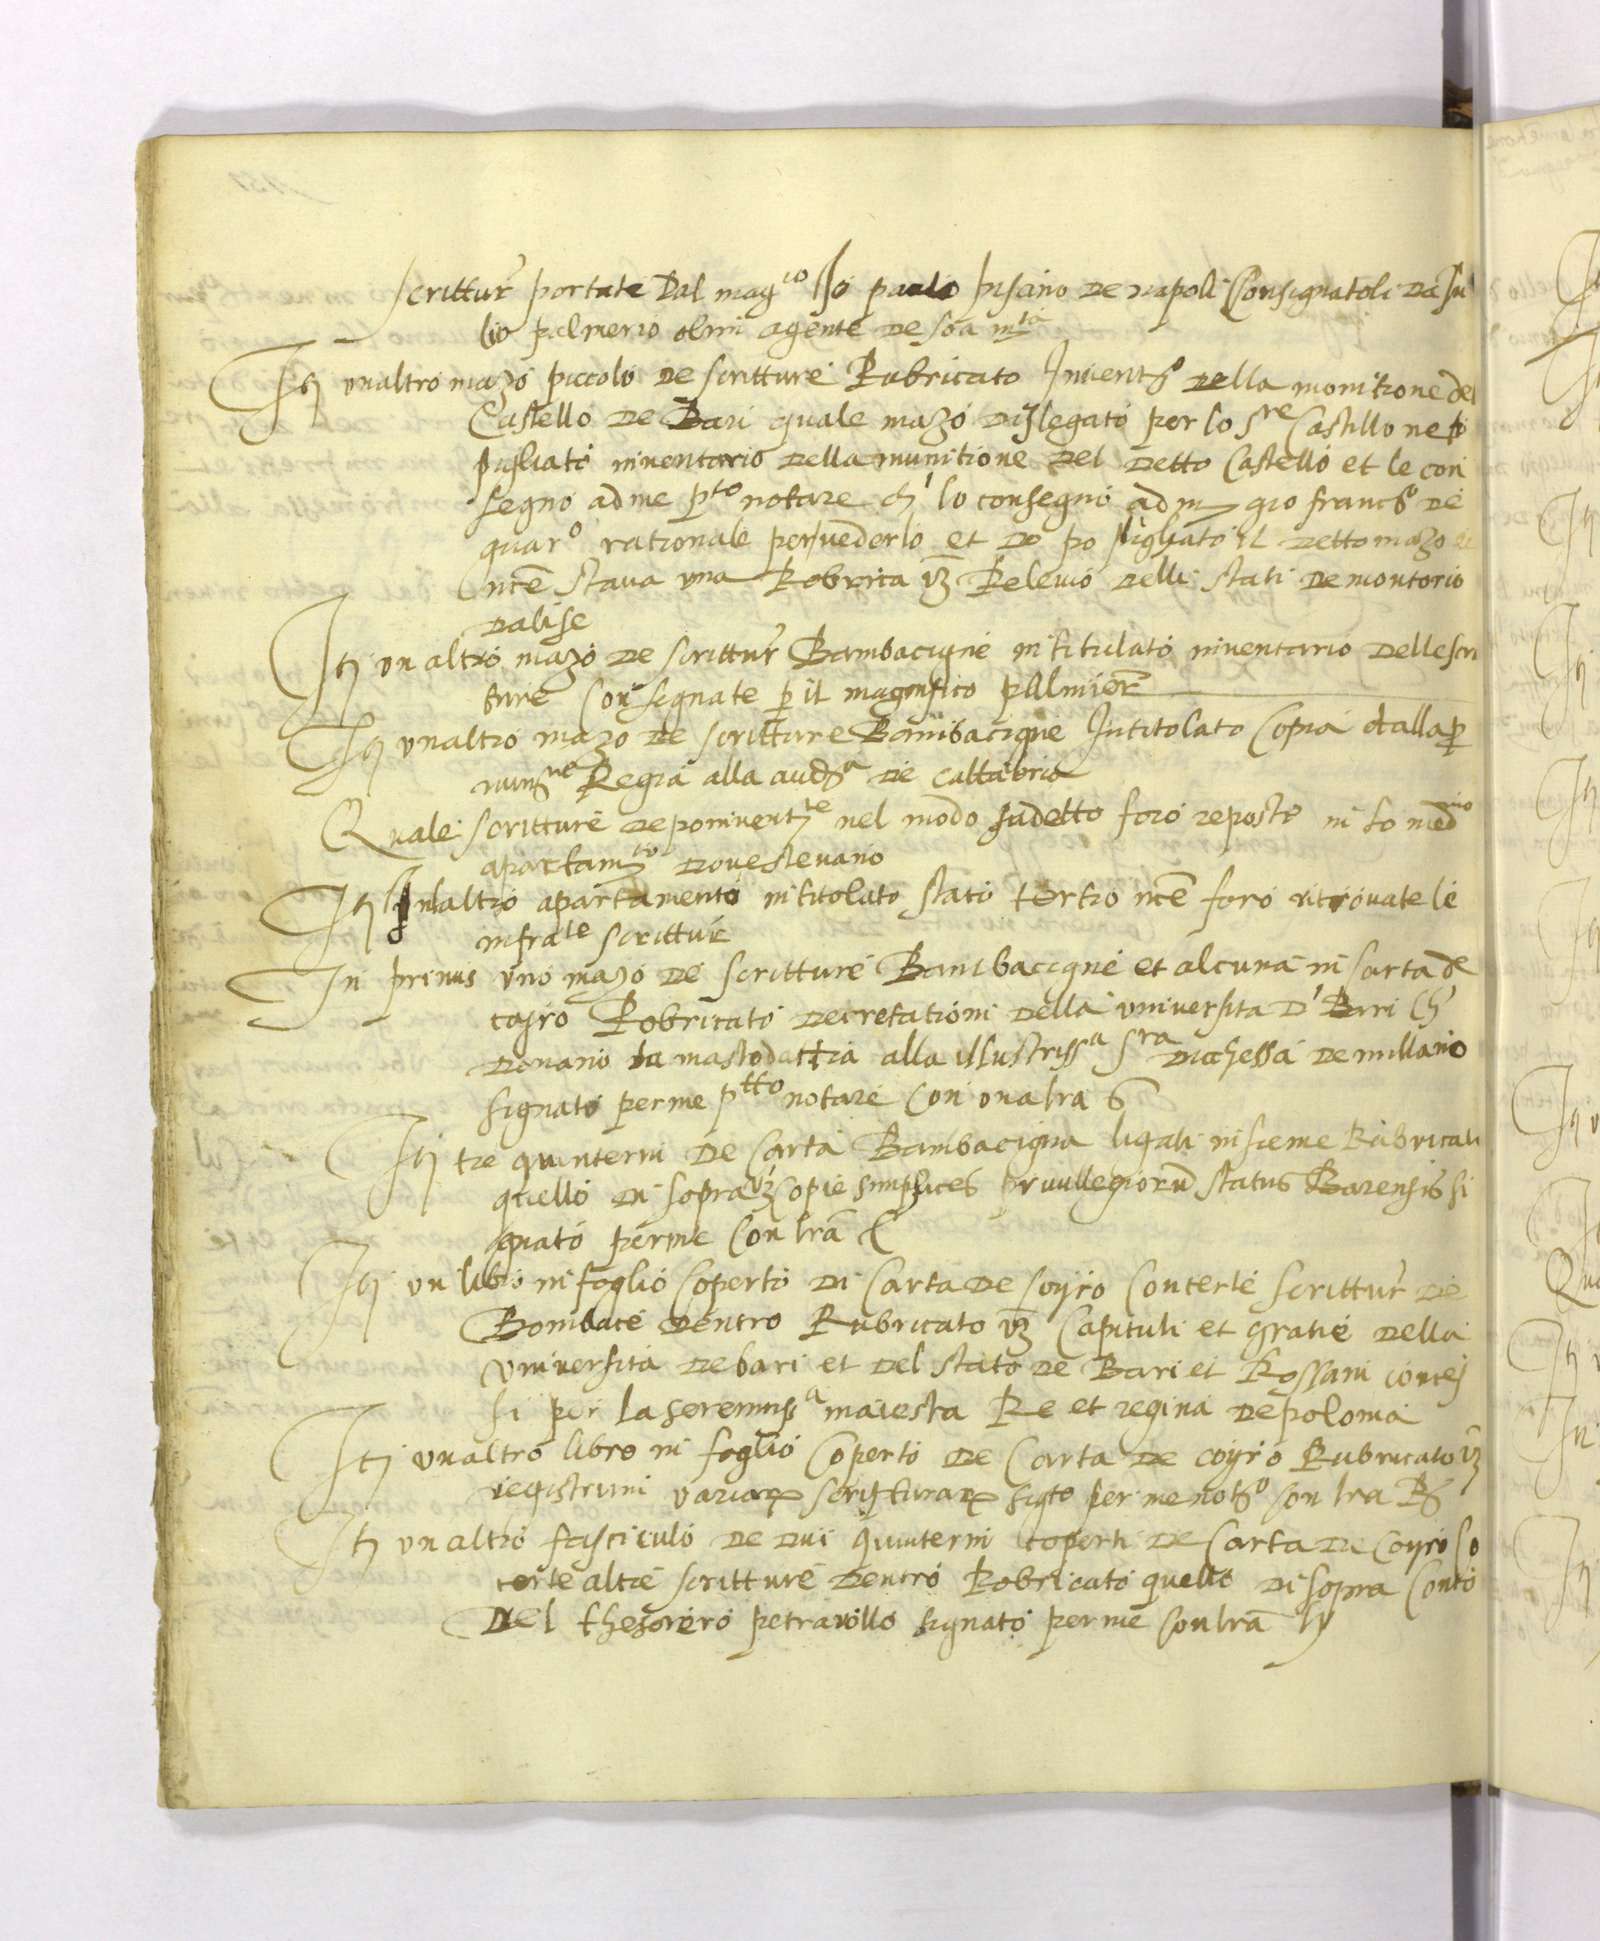 scritture portate Dal mag.co Jo: paulo pisano De napoli Consignatoli Da Ju
lio palmerio olim agente De soa m.ta
It~ unaltro mazo piccolo De scritture Rubricato Invent.o Della monitione del
Castello De Bari quale mazo Dislegato per lo S.re Castillo ne fo
pigliato inventario Della munitione Del Detto Castello et le con
segno ad me p.to notare ch' lo consegno ad m. gio franc.o De
quar.o rationale per vederlo et Do po pigliato il Detto mazo
nce stava una Robrica vz Relevio Delli stati De montorio
Dalise
It~ un altro mazo De scritture Bambacigne intitulato inventario Delle scri
ture Consegnate p il magnifico palmier
It~ unaltro mazo De scritture Bambacigne Intitolato Copia dalla p
Regia alla aud.a De Callabria
Quale scritture nel modo sudetto foro reposte in lo med.mo
apartam.to Dove stevano
It~ Inlaltro apartamento intitolato stato tertio nce foro ritrovate le
infra.te scritture
In primis uno mazo De scritture Bambacigne et alcuna in carta de
coiro Robricato Decretationi Della universita D' Bari Ch'
Donano la mastodattia alla illustriss.a S.ra Duchessa De millano
signato per me p.tto notare Con una lra G
It~ tre quinterni De Carta Bambacigna ligati insieme Rubricati
quello Di sopra vz Copie simplices privillegiorum status Barensis si
gnato per me Con lra
It~ un libro in foglio Coperto Di Carta De coyro Con certe scritture De
Bombace Dentro Rubricato vz Capituli et gratie Della
universita De bari et Del stato De Bari et Rossani conces
si per la sereniss.a maiesta Re et regina De polonia
It~ unaltro libro in foglio Coperto De Carta De coyro Rubricato vz
registrum variarum scripturarum sig.to per me not.o con lra
It~ un altro fasciculo De Dui quinterni Coperti De Carta De Coyro Co
certe altre scritture Dentro Robricato quello Di sopra Conto
Del thesorero petrarollo signato per me Con lra